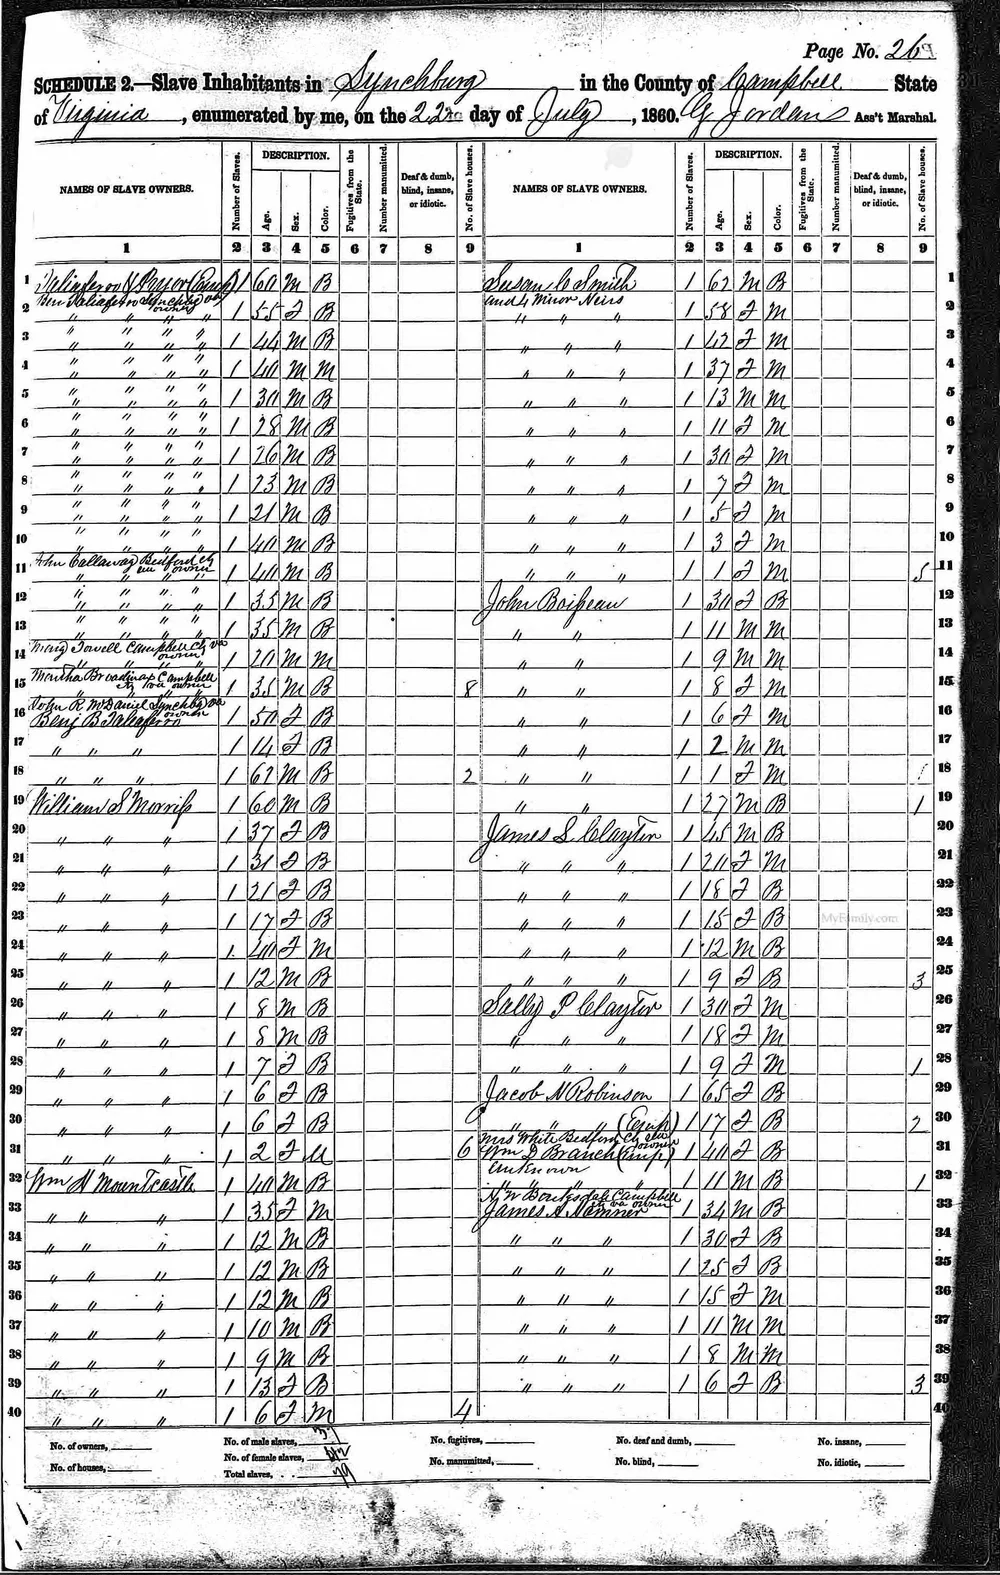 Page No. 26
SCHEDULE 2.—Slave Inhabitants in Lynchburg in the County of Campbell State
of Virginia, enumerated by me, on the 22 day of July, 1860. Jordan Ass't Marshal.
NAMES OF SLAVE OWNERS. Number of Slaves. DESCRIPTION. Age. Sex. Color. Fugitives from the State. Number manumitted. Deaf & dumb, blind, insane, or idiotic. No. of Slave houses. NAMES OF SLAVE OWNERS. Number of Slaves. DESCRIPTION. Age. Sex. Color. Fugitives from the State. Number manumitted. Deaf & dumb, blind, insane, or idiotic. No. of Slave houses.
1 2 3 4 5 6 7 8 9 1 2 3 4 5 6 7 8 9
1 1 60 M B Susan C Smith 1 62 M B 1
Ben Taliaferro Lynchbg Va owner and 4 Minor Heirs
2 1 55 F B " " " 1 58 F M 2
3 " " " " 1 44 M B " " " 1 42 F M 3
4 " " " " 1 40 M M " " " 1 37 F M 4
5 " " " " 1 30 M B " " " 1 13 M M 5
6 " " " " 1 28 M B " " " 1 11 F M 6
7 " " " " 1 26 M B " " " 1 30 F M 7
8 " " " " 1 23 M B " " " 1 7 F M 8
9 " " " " 1 21 M B " " " 1 5 F M 9
10 " " " " 1 40 M B " " " 1 3 F M 10
John Callaway Bedford Cty Va owner
11 " " " " 1 40 M B " " " 1 1 F M 5 11
12 " " " " 1 35 M B John 1 30 F B 12
13 " " " " 1 35 M B " " 1 11 M M 13
Campbell Cty Va owner
14 " " " " 1 20 M M " " 1 9 M M 14
Martha Campbell Cty Va owner
15 " " " " 1 35 M B 8 " " 1 8 F M 15
John R McDaniel Lynchbg Va owner
16 Benj B Taliaferro 1 50 F B " " 1 6 F M 16
17 " " " 1 14 F B " " 1 2 M M 17
18 " " " 1 62 M B 2 " " 1 1 F M 18
19 William S Morriss 1 60 M B " " 1 27 M B 1 19
20 " " " 1 37 F B James S Clayton 1 45 M B 20
21 " " " 1 31 F B " " " 1 20 F M 21
22 " " " 1 21 F B " " " 1 18 F B 22
23 " " " 1 17 F B " " " 1 15 F B MyFamily.com 23
24 " " " 1 40 F M " " " 1 12 M B 24
25 " " " 1 12 M B " " " 1 9 F B 3 25
26 " " " 1 8 M B Sally P Clayton 1 30 F M 26
27 " " " 1 8 M B " " " 1 18 F M 27
28 " " " 1 7 F B " " " 1 9 F M 1 28
29 " " " 1 6 F B Jacob N Robinson 1 65 F B 29
30 " " " 1 6 F B " " (Emp) 1 17 F B 2 30
Mrs White Bedford Cty Va owner
31 " " " 1 2 F M 6 Wm D Branch (Emp) 1 40 F B 31
Unknown
32 Wm H Mountcastle 1 40 M B 1 11 M B 1 32
Campbell Cty Va owner
33 " " " 1 35 F M James A 1 34 M B 33
34 " " " 1 12 M B " " " 1 30 F B 34
35 " " " 1 12 M B " " " 1 25 F B 35
36 " " " 1 12 M B " " " 1 15 F M 36
37 " " " 1 10 M B " " " 1 11 M M 37
38 " " " 1 9 M B " " " 1 8 M M 38
39 " " " 1 13 F B " " " 1 6 F B 3 39
40 " " " 1 6 F M 4 40
No. of owners, No. of male slaves, 37 No. fugitives, No. deaf and dumb, No. insane,
No. of houses, No. of female slaves, 42 No. manumitted, No. blind, No. idiotic,
Total slaves, 79